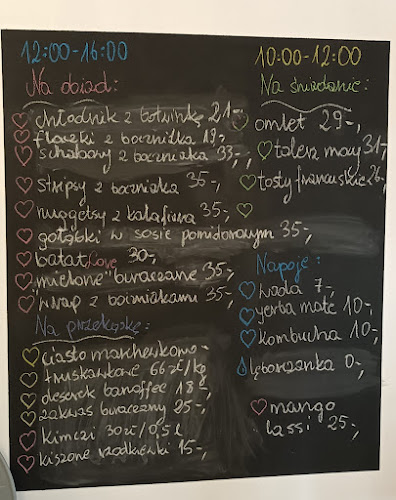 12:00-16:00
Na obiad:
chłodnik z botwinkę 21-,
flaczki z boczniaka 19-,
schabowy z boczniaka 33-,
stripsy z boczniaka 35-,
nuggetsy z kalafiora 35-,
gołąbki w sosie pomidorowym 35-,
batat love 30-,
"mielone" buraczane 35-,
wrap z boczniakami 35-,
Na przekąskę:
ciasto marchewkowo-
truskawkowe 66 zł/kg
deserek banoffee 18-,
zakwas buraczany 25-,
kimczi 30zł/0,5l
kiszone rzodkiewki 15-,
10:00-12:00
Na śniadanie:
omlet 29-,
talerz mocy 31-,
tosty francuskie 26-,
Napoje:
woda 7-,
yerba mate 10-,
kombucha 10-,
lęborzanka 0-,
mango
lassi 25-,